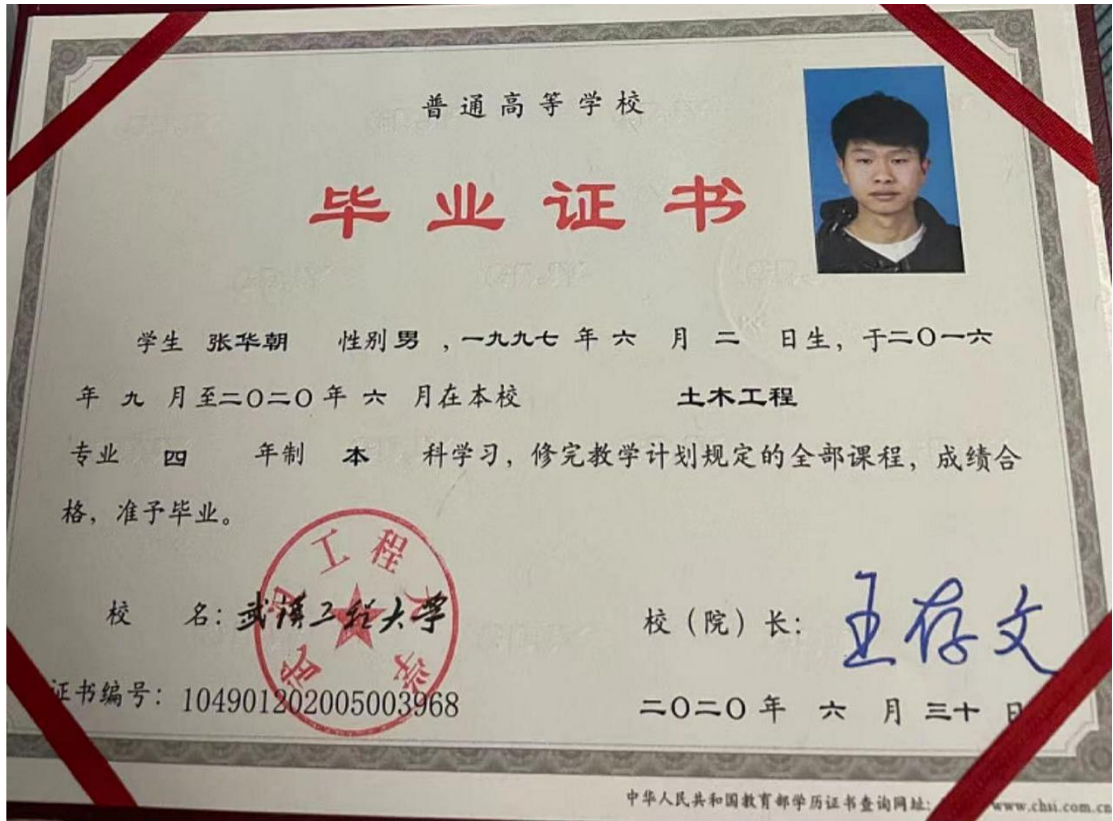 普通高等学校
毕业证书
学生 张华朝 性别 男 ，一九九七 年 六 月 二 日生，于二〇一六
年 九 月至二〇二〇年 六 月在本校 土木工程
专业 四 年制 本 科学习，修完教学计划规定的全部课程，成绩合
格，准予毕业。
校 名：武汉工程大学
校（院）长：王存文
证书编号：104901202005003968
二〇二〇年 六 月 三十 日
中华人民共和国教育部学历证书查询网址：www.chsi.com.cn